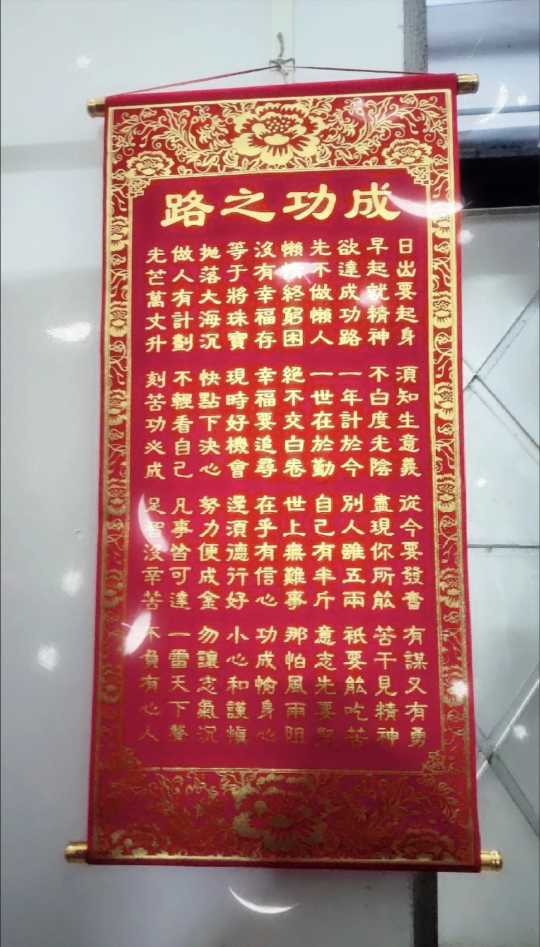 成功之路
日出要起身 須知生意義 從今要發奮 有謀又有勇
早起就精神 不白度光陰 盡現你所能 苦干見精神
欲達成功路 一年計於今 別人雖五兩 祇要能吃苦
先不做懶人 一世在於勤 自己有半斤 意志先要
懶終窮困 絕不交白卷 世上無難事 那怕風雨阻
沒有幸福存 幸福要追尋 在乎有信心 功成愉身心
等于將珠寶 現時好機會 還須德行好 小心和謹慎
拋落大海沉 快點下決心 努力便成金 勿讓志氣沉
做人有計劃 不輕看自己 凡事皆可達 一雷天下聲
光芒萬丈升 刻苦功必成 足沒辛苦 不負有心人